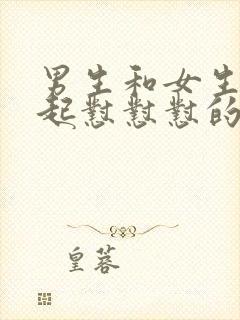 男生和女生
起怼怼怼的
皇蓉